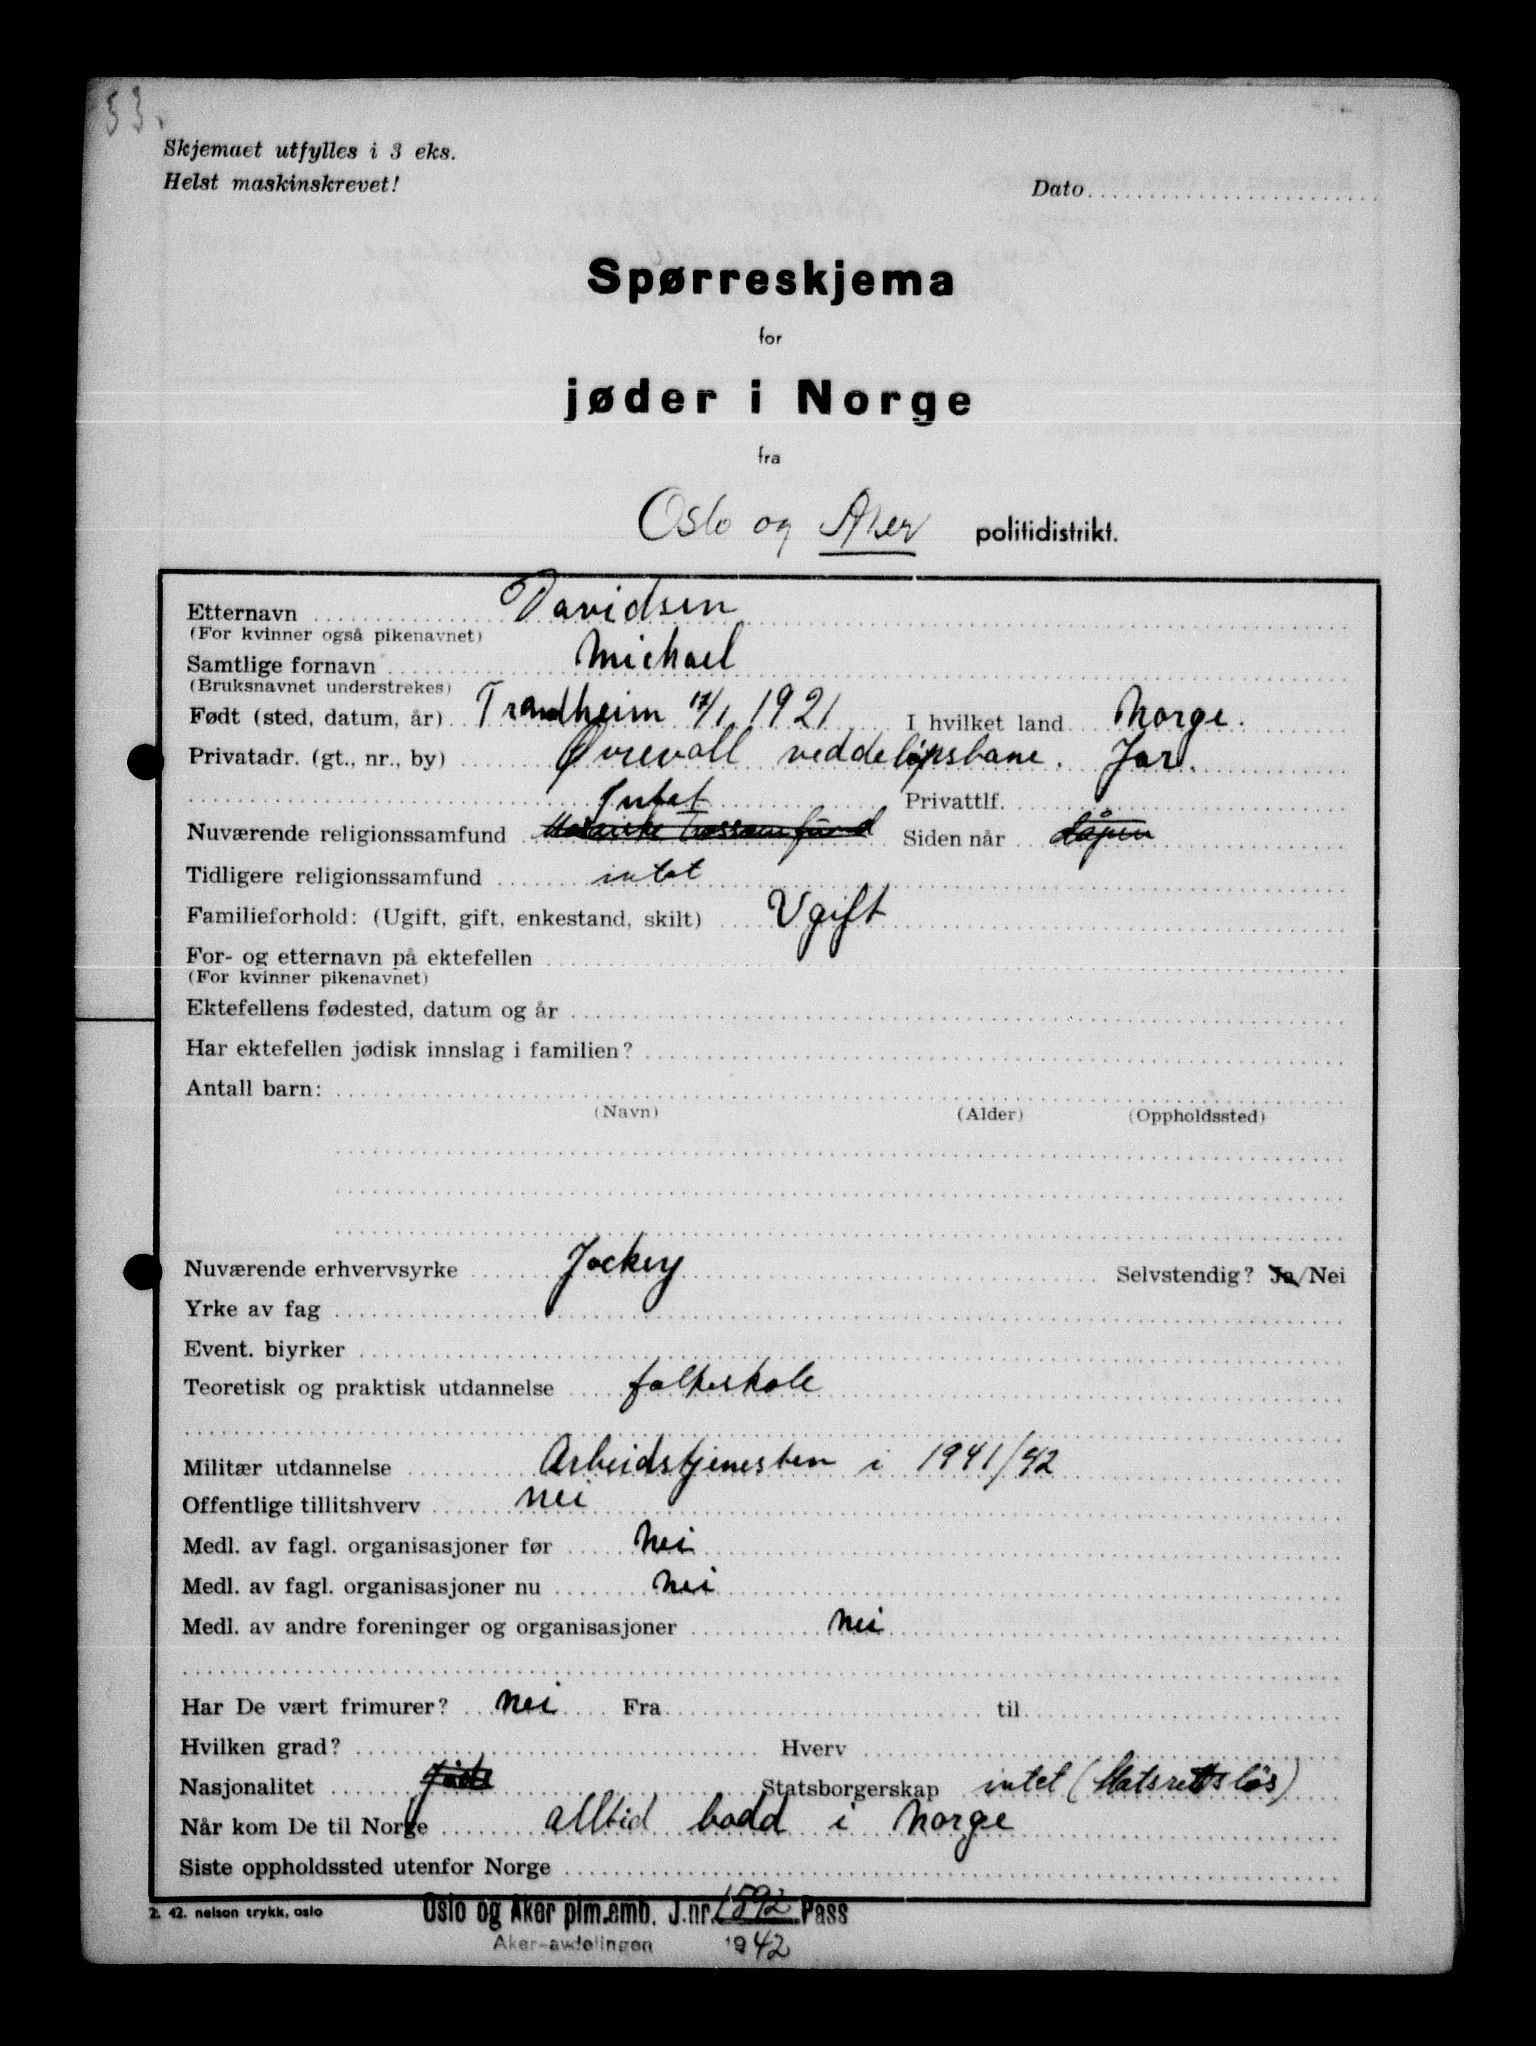 53.
Skjemaet utfylles i 3 eks.
Helst maskinskrevet!
Dato
Spørreskjema
for
jøder i Norge
fra
Oslo og Aker politidistrikt.
Etternavn Davidsen
(For kvinner også pikenavnet)
Samtlige fornavn Michael
(Bruksnavnet understrekes)
Født (sted, datum, år) Trondheim 17/1 1921 I hvilket land Norge.
Privatadr. (gt., nr., by) Øvrevoll veddeløpsbane. Jar.
Intet Privattlf.
Nuværende religionssamfund Mosaiske Trossamfund Siden når
Tidligere religionssamfund intet
Familieforhold: (Ugift, gift, enkestand, skilt) Ugift
For- og etternavn på ektefellen
(For kvinner pikenavnet)
Ektefellens fødested, datum og år
Har ektefellen jødisk innslag i familien?
Antall barn:
(Navn) (Alder) (Oppholdssted)
Nuværende erhvervsyrke Jockey Selvstendig? Ja/Nei
Yrke av fag
Event. biyrker
Teoretisk og praktisk utdannelse folkeskole
Militær utdannelse Arbeidstjenesten i 1941/42
Offentlige tillitshverv nei
Medl. av fagl. organisasjoner før Nei
Medl. av fagl. organisasjoner nu nei
Medl. av andre foreninger og organisasjoner nei
Har De vært frimurer? nei Fra til
Hvilken grad? Hverv
Nasjonalitet jøde Statsborgerskap intet (Statsrettsløs)
Når kom De til Norge alltid bodd i Norge
Siste oppholdssted utenfor Norge
2. 42. nelson trykk, oslo
Oslo og Aker plm.emb. J.nr. 1592 Pass
Aker-avdelingen 1942